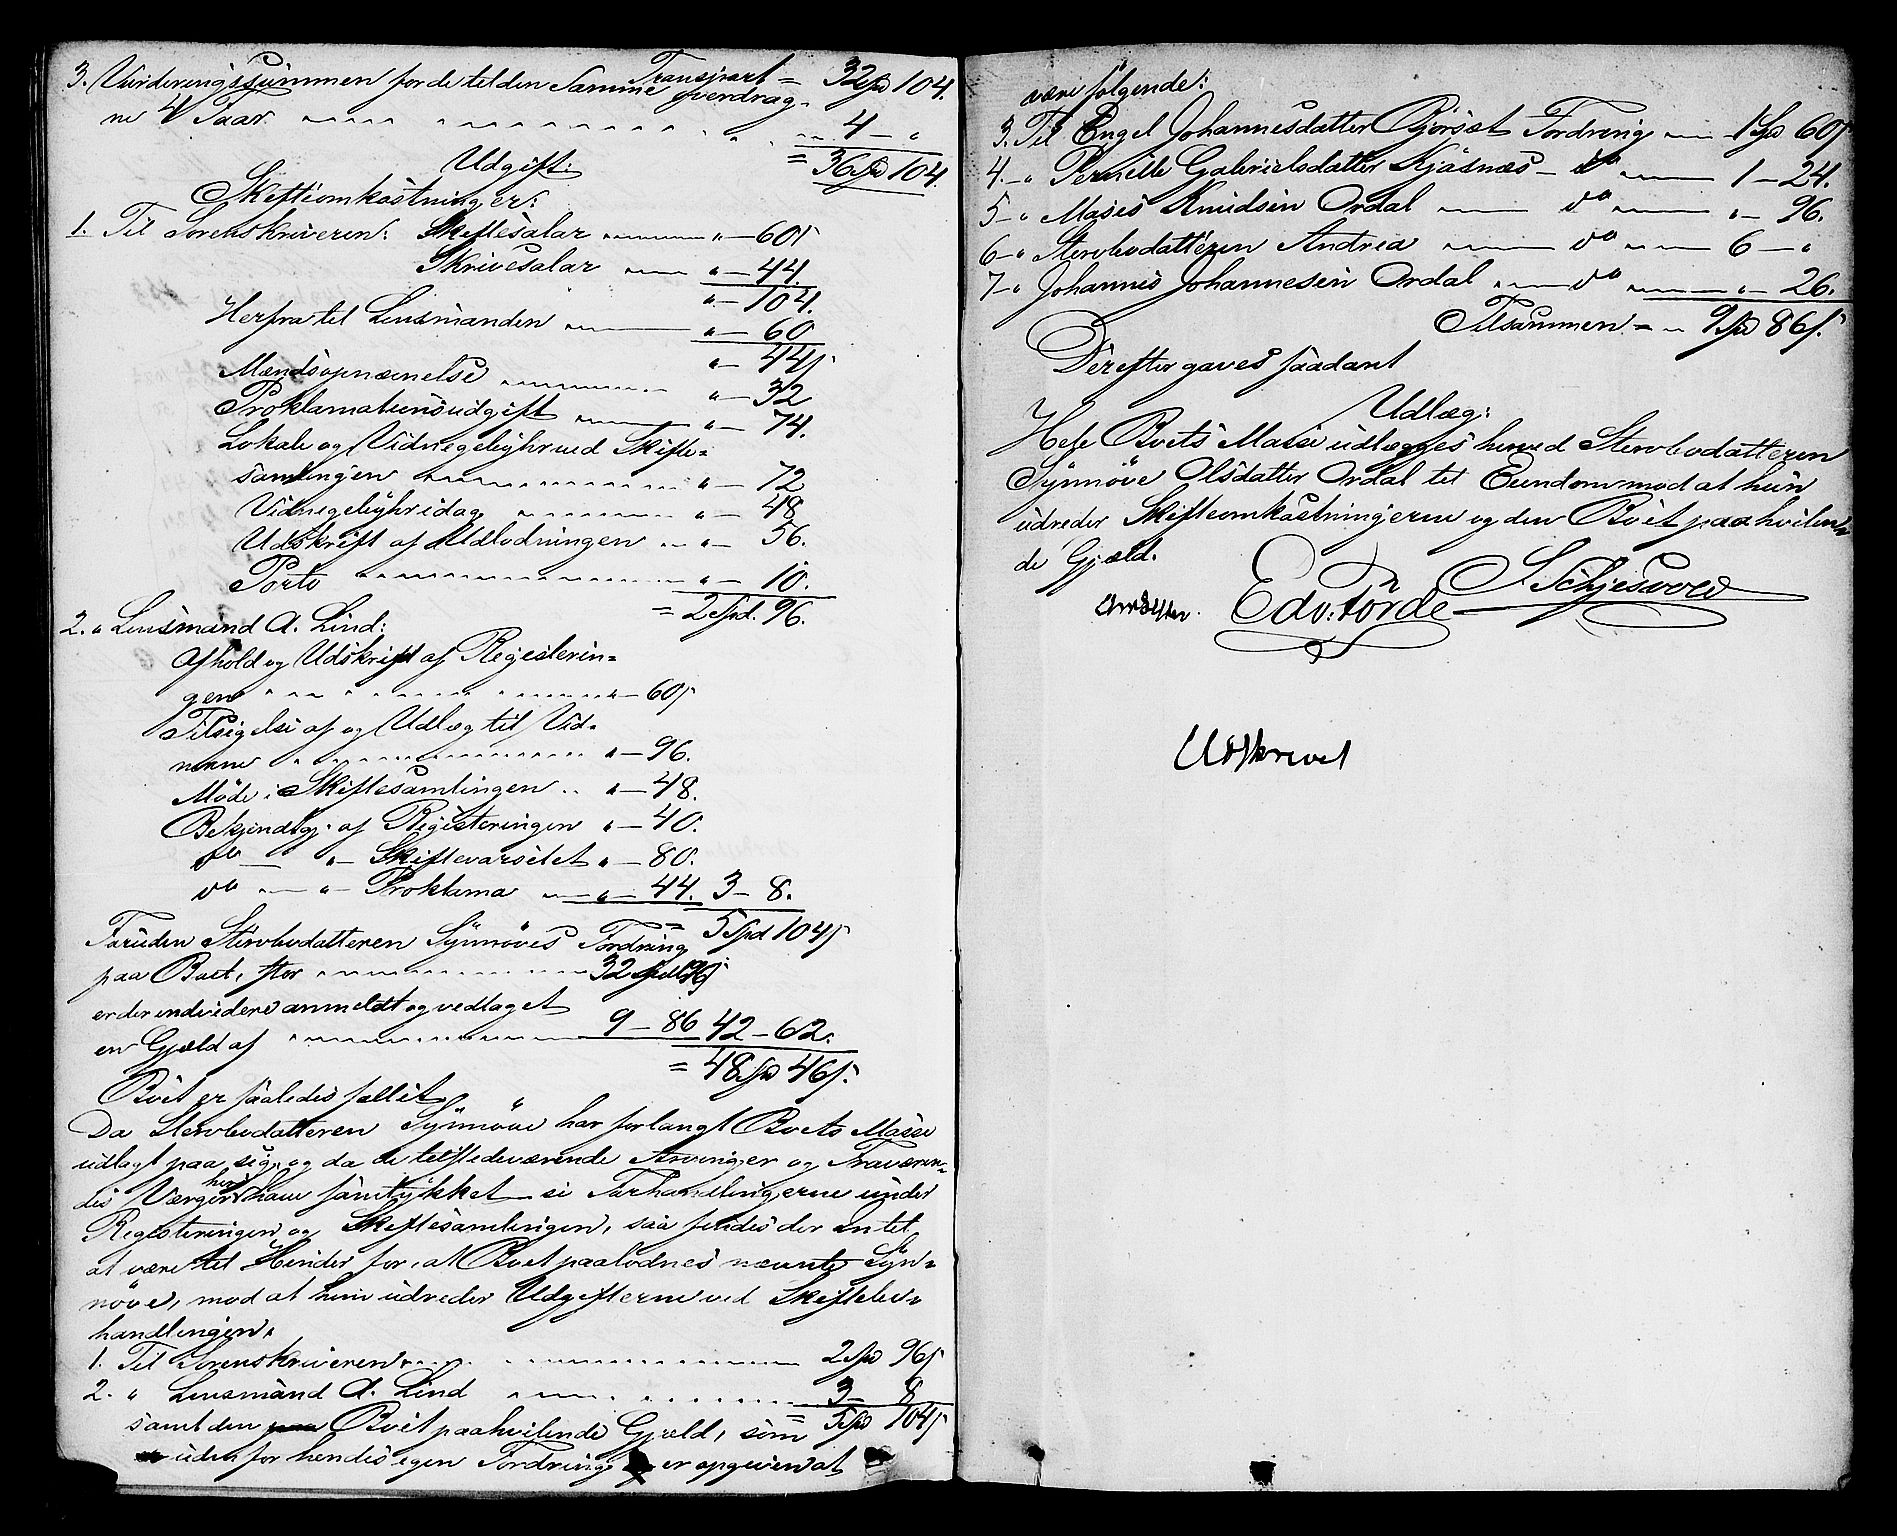 Transport = 32 Spd 104.
3. Vurderingssummen for de til den Samme overdrag-
ne 4 Faar 4 - "
= 36 Spd 104.
Udgift:
Skifteomkostninger:
1. Til Sorenskriveren: Skiftesalar " - 60 s
Skrivesalar " - 44.
" - 104.
Herfra til Lensmanden " - 60
" - 44 s
Mændsopnævnelse " - 32
Proklamationsudgift " - 74.
Lokale og Vidnegebyhr ved Skifte=
samlingen " - 72
Vidnegebyhr idag " - 48
Udskrift af Udlodningen " - 56.
Porto " - 10.
= 2 Spd. 96.
2. " Lensmand A. Lind:
Afhold og Udskrift af Registerin=
gen " - 60 s
Tilsigelse af og Udlæg til Vid-
nerne " - 96.
Møde i Skiftesamlingen " - 48.
Bekjendtgj. af Registeringen " - 40.
do - " - Skiftevarselet " - 80.
do - " - Proklama " - 44. 3 - 8.
= 5 Spd 104 s
Foruden Stervbodatteren Synnøves Fordring
paa Boet, stor 32 Spd 96 s
er der endvidere anmeldt og vedtaget
en Gjæld af 9 - 86 42 - 62.
= 48 Spd 46 s.
Boet er saaledes fallit.
Da Stervbodatteren Synnøve har forlangt Boets Masse
udlagt paa sig, og da de tilstedeværende Arvinger og Fraværen-
des Værger heri have samtykket se Forhandlingerne under
Registeringen og Skiftesamlingen, saa findes der intet
at være til Hinder for, at Boet paalodnes nævnte Syn=
nøve, mod at hun udreder Udgifterne ved Skiftebe-
handlingen.
1. Til Sorenskriveren 2 Spd 96 s
2. " Lensmand A. Lind 3 - 8
= 5 Spd 104 s
samt den paa Boet paahvilende Gjæld, som
udenfor hendes egen Fordring er opgiven at
være følgende:
3. Til Engel Johannesdatter Bjørset Fordring 1 Spd 60 s
4. - " Pernille Gabrielsdatter Kjøsnæs - do 1 - 24.
5 - " Moses Knudsen Ordal do " - 96.
6 - " Stervbodatteren Andrea do 6 - "
7 - " Johannes Johannesen Ordal do " - 26.
Tilsammen = 9 Spd 86 s.
Derefter gaves saadant
Udlæg:
Hele Boets Masse udlægges herved Stervbodatteren
Synnøve Olsdatter Ordal til Eiendom mod at hun
udreder Skifteomkostningerne og den Boet paahvilen-
de Gjæld.
Edv: Førde S Schjesvold
Udskrevet